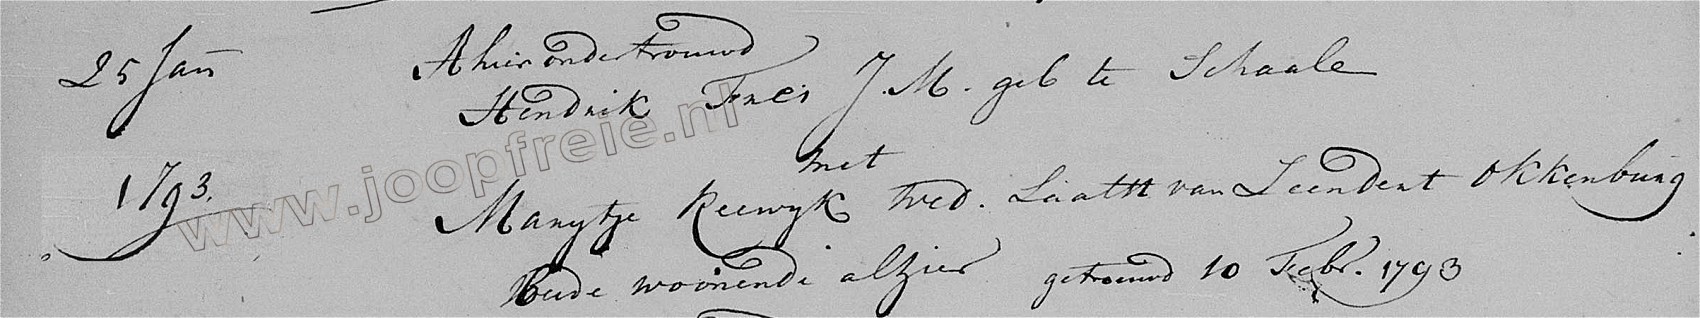 25 Jan Alhier ondertrouwd
Hendrik Freij J.M. geb te Schaale
met
1793. Marijtje Reewijk Wed. Laatst van Leendert Okkenburg
beide woonende alhier getrouwd 10 Febr. 1793
www.joopfreie.nl